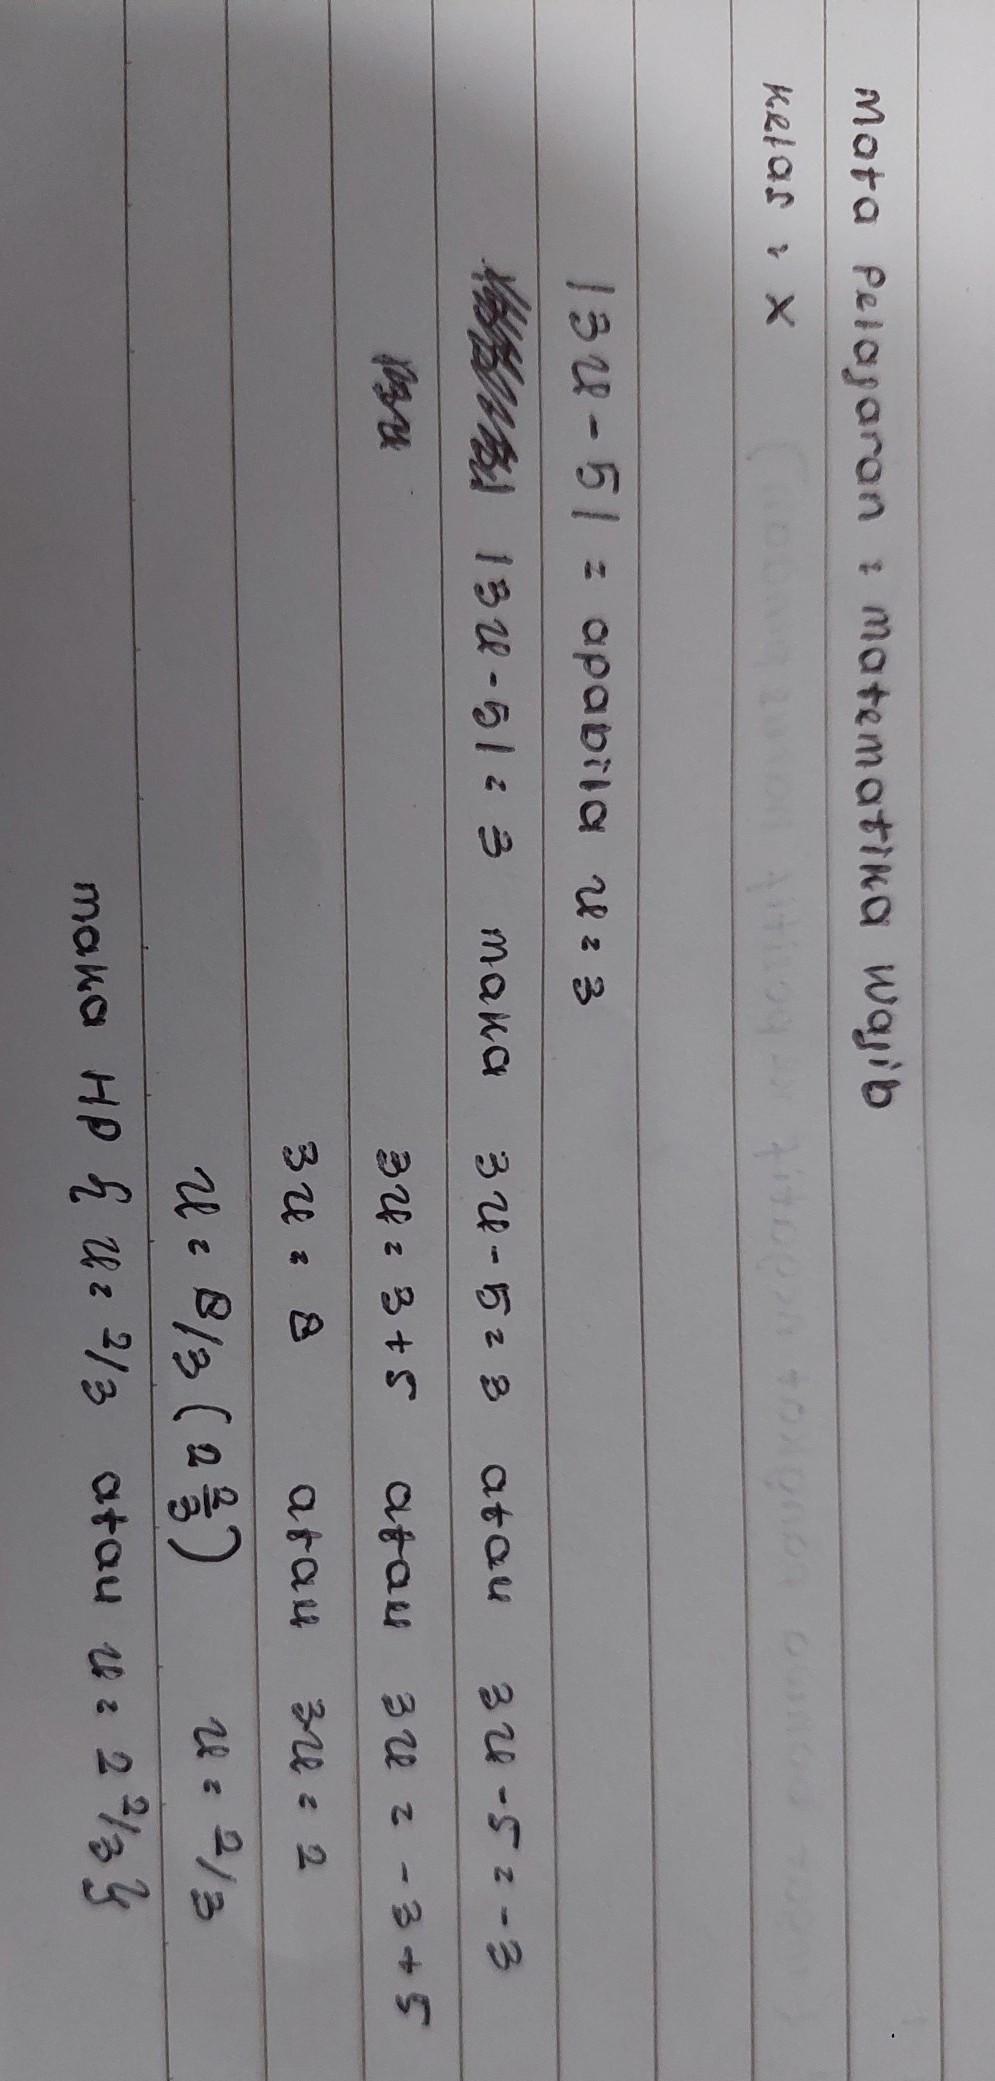 Mata Pelajaran : matematika wajib
kelas : X
|3x - 5| = apabila x = 3
|3x - 5| = 3 maka 3x - 5 = 3 atau 3x - 5 = -3
3x = 3 + 5 atau 3x = -3 + 5
3x = 8 atau 3x = 2
x = 8/3 (2 2/3) x = 2/3
maka HP { x = 2/3 atau x = 2 2/3 }